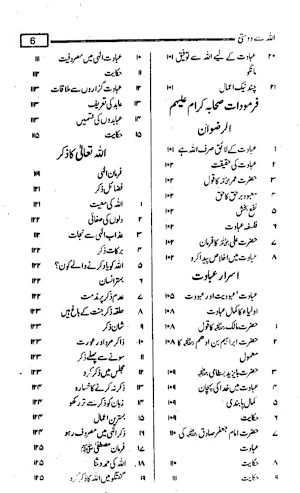 6
اللہ سے دوستی
۲۰ عبادت کے لیے اللہ سے توفیق ۱۰۱
مانگو
۲۱ چند نیک اعمال ۱۰۱
فرمودات صحابہ کرام علیہم
الرضوان
۱ عبادت کے لائق صرف اللہ ہے ۱۰۲
۲ عبادت کی حقیقت ۱۰۲
۳ حضرت عمر کا قول ۱۰۲
۴ معبود برحق کا حق ۱۰۲
۵ نفع بخش ۱۰۲
۶ فلسفہ عبادت ۱۰۲
۷ حضرت علی کا فرمان ۱۰۲
۸ عبادت میں اخلاص پیدا کرو ۱۰۲
اسرار عبادت
۱ عبادت، عبودیت اور عبودت ۱۰۵
۲ اولیاء کا کمال عبادت
۳ حضرت مالک کا قول ۱۰۸
۴ حضرت ابراہیم بن ادھم کا ۱۰۸
معمول
۵ حضرت بایزید بسطامی ۱۰۹
۴ عبادت میں خدا کی پہچان ۱۰۹
۵ کمال پابندی ۱۰۹
۶ حکایت ۱۰۹
۷ حضرت امام جعفر صادق کی ۱۱۰
عبادت
۸ حکایت ۱۱۰
۹ حکایت ۱۱۱
۱۰ عبادت الٰہی میں مصروفیت ۱۱۱
۱۱ حکایت ۱۱۲
۱۲ عبادت گزاروں سے ملاقات ۱۱۳
۱۳ عابد کی تعریف ۱۱۳
۱۴ عابدوں کی قسمیں
۱۵ حکایت ۱۱۵
اللہ تعالیٰ کا ذکر
فرمان الٰہی ۱۱۹
فضائل ذکر ۱۲۱
۱ اللہ کی معیت ۱۲۱
۲ دلوں کی صفائی ۱۲۲
۳ عذاب الٰہی سے نجات ۱۲۲
۴ برکات ذکر ۱۲۲
۵ اللہ کو یاد کرنے والے کون؟ ۱۲۲
۶ بہتر انسان ۱۲۲
۷ عدم ذکر پر مذمت ۱۲۲
۸ حلقہ ذکر جنت کے باغ ہیں ۱۲۳
۹ شان ذکر ۱۲۳
۱۰ ذاکر مرد اور عورت ۱۲۳
۱۱ سونے سے پہلے ذکر ۱۲۳
۱۲ مجلس میں ذکر کرو
۱۳ ذکر نہ کرنے کا خسارہ ۱۲۴
۱۴ زبان کو ذکر سے تر رکھو ۱۲۴
۱۵ بہترین اعمال ۱۲۴
۱۶ ذکر الٰہی میں مصروف رہو ۱۲۴
۱۷ فرمان مصطفیٰ ﷺ ۱۲۵
۱۸ اللہ کی حمد و ثنا ۱۲۵
۱۹ گفتگو میں اللہ کا ذکر کرو ۱۲۵